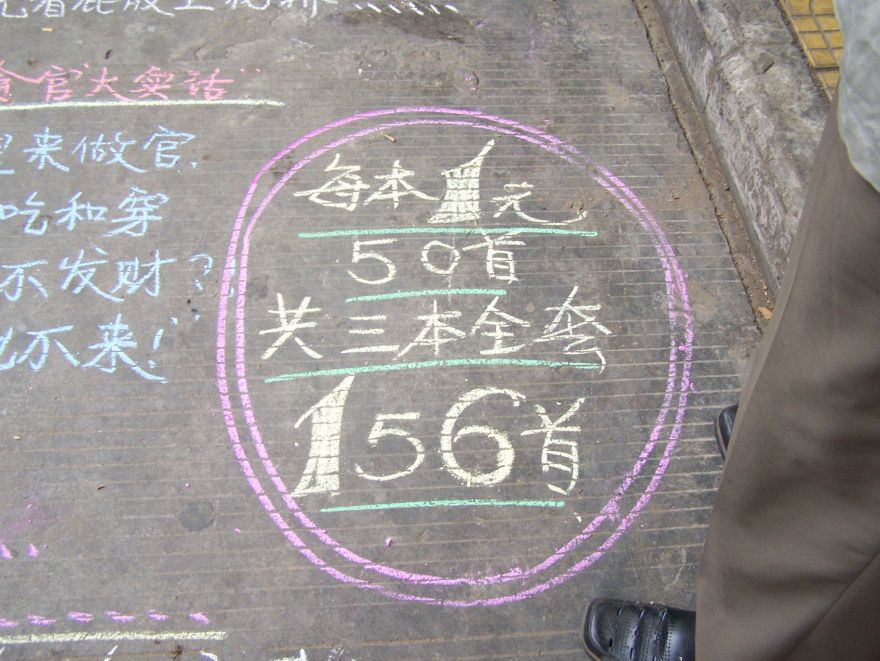 看屁股上
贪官“大实话”
来做官,
吃和穿
不发财?
不来!”
每本1元
50首
共三本全套
156首